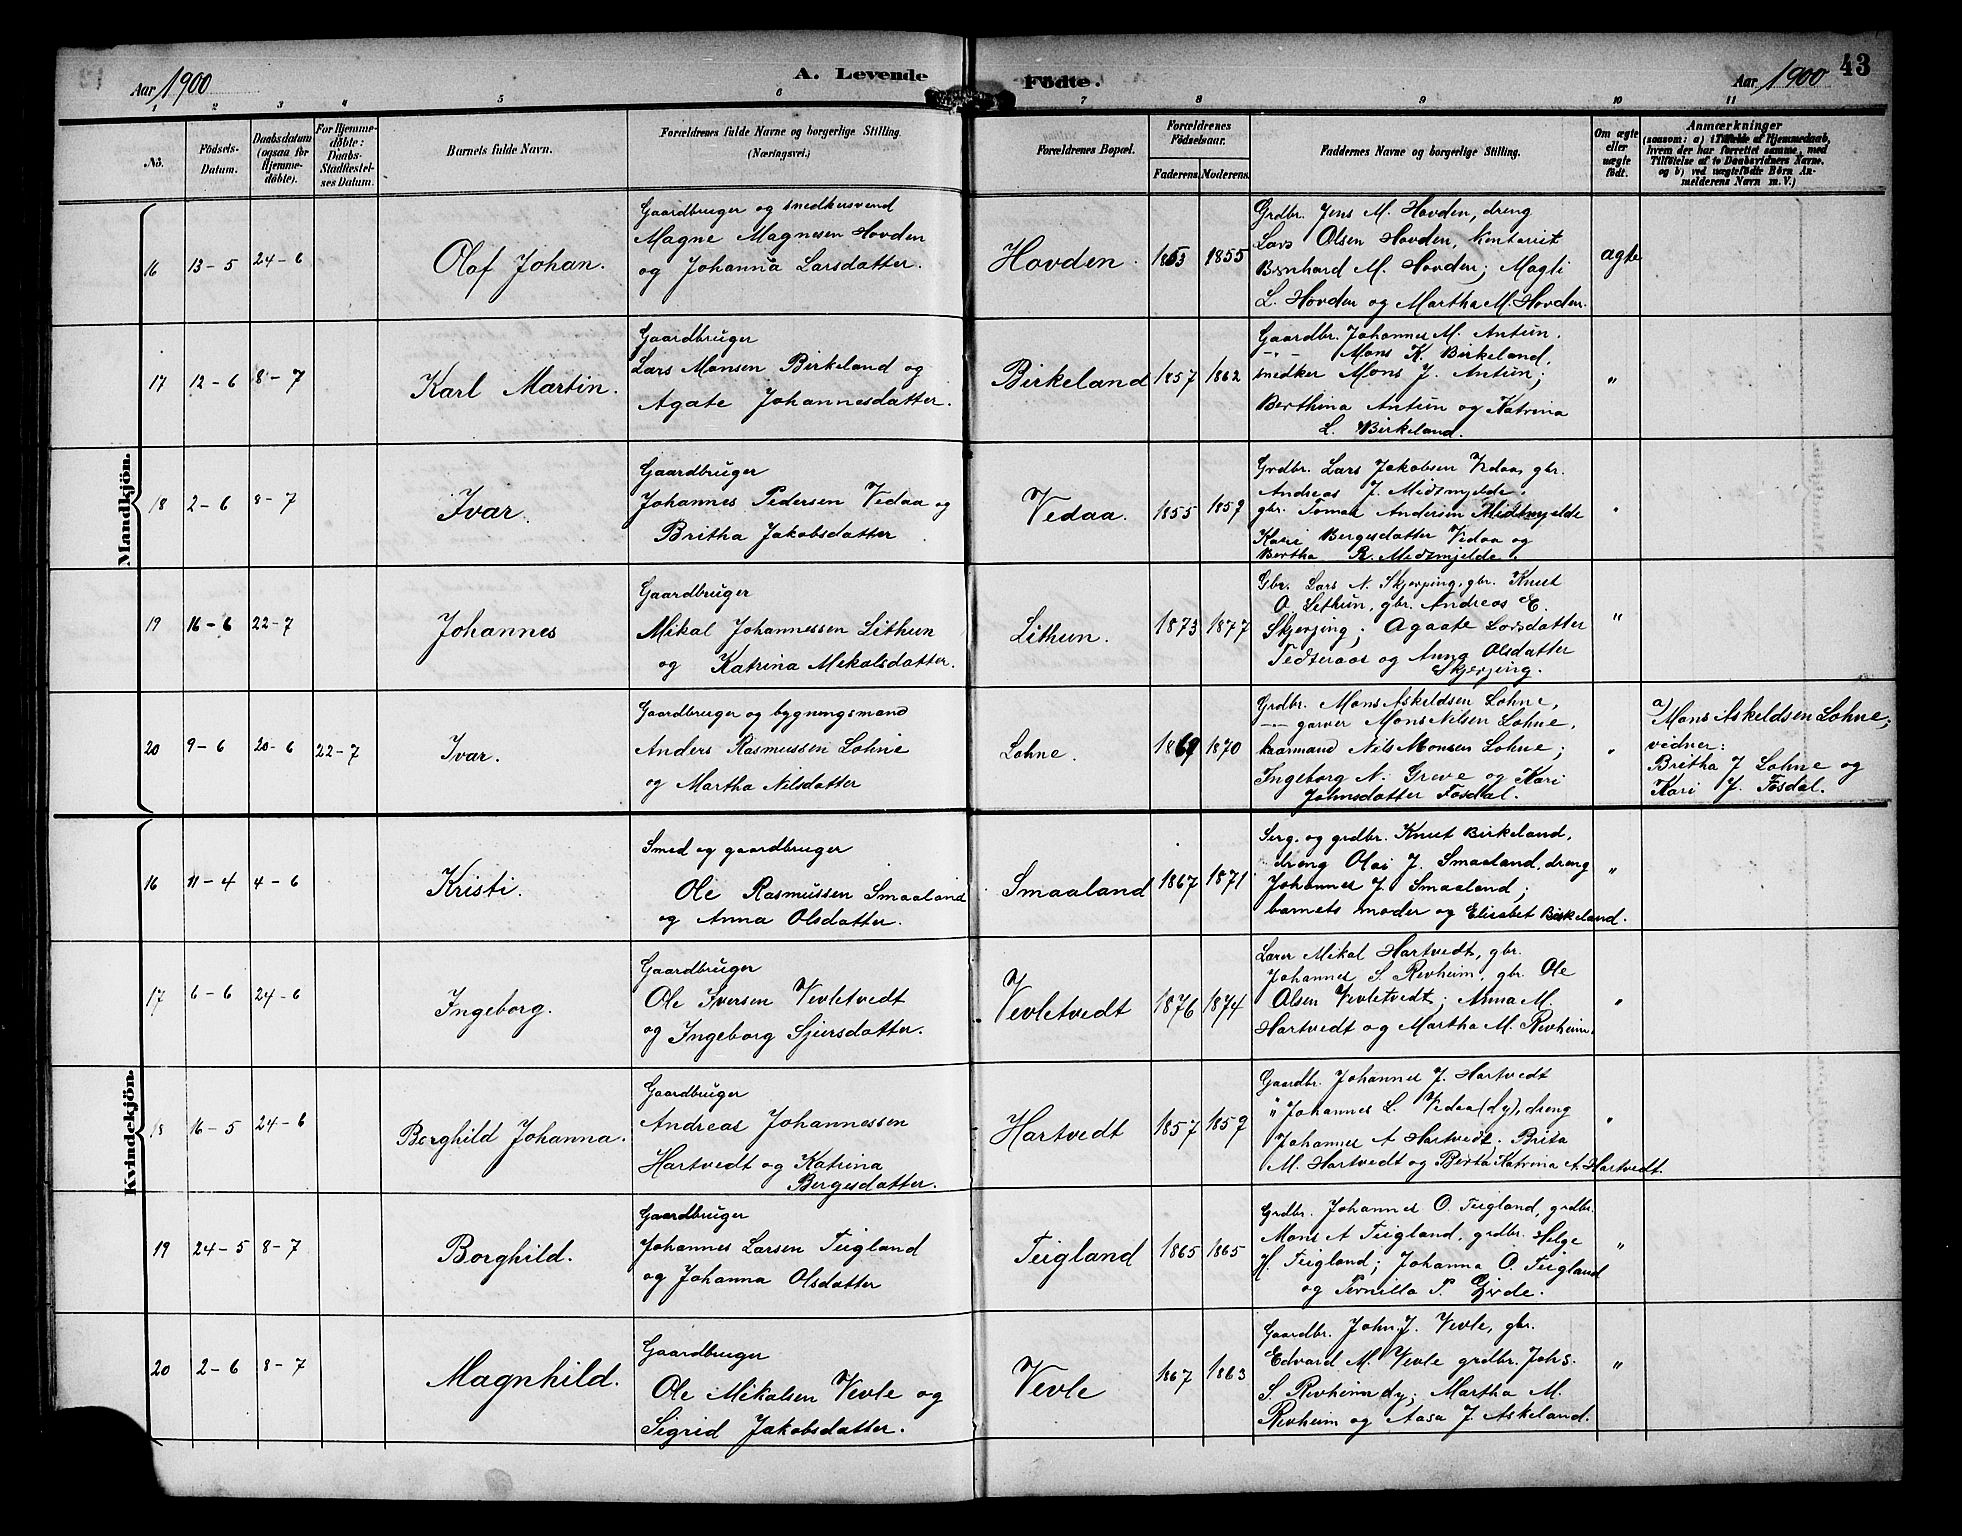 Aar 1900
A. Levende Födte.
Aar 1900
43
1 2 3 4 5 6 7 8 9 10 11
No.
Födsels-Datum.
Daabsdatum (ogsaa for Hjemmedöbte).
For Hjemmedöbte: Daabs-Stadfæstelses Datum.
Barnets fulde Navn.
Forældrenes fulde Navne og borgerlige Stilling. (Næringsvei.)
Forældrenes Bopæl.
Forældrenes Födselsaar.
Faderens. Moderens.
Faddernes Navne og borgerlige Stilling.
Om ægte eller uægte födt.
Anmærkninger
(saasom: a) i Tilfælde af Hjemmedaab, hvem der har forrettet samme, med Tilföielse af to Daabsvidners Navne, og b) ved uægtefödte Börn Anmelderens Navn m. V.)
Mandkjön.
16 13-5 24-6
Olaf Johan.
Gaardbruger og snedkersvend
Magne Magnesen Hovden
og Johanna Larsdatter.
Hovden. 1853 1855
Grdbr. Jens M. Hovden, dreng
Lars Olsen Hovden, kontorist
Bernhard M. Hovden; Magli
L. Hovden og Martha M. Hovden.
ægte
17 12-6 8-7
Karl Martin.
Gaardbruger
Lars Monsen Birkeland og
Agate Johannesdatter.
Birkeland 1857 1862
Gaardbr. Johannes M. Antun.
-"- Mons K. Birkeland,
snedker Mons J. Antun;
Berthina Antun og Katrina
L. Birkeland.
"
18 2-6 8-7
Ivar.
Gaardbruger
Johannes Pedersen Vedaa og
Britha Jakobsdatter
Vedaa. 1855 1859
Grdbr. Lars Jakobsen Vedaa, gbr.
Andreas J. Midtmjelde.
gbr. Tomas Andersen Midtmjelde
Kari Bergesdatter Vedaa og
Bertha R. Midtmjelde.
"
19 16-6 22-7
Johannes
Gaardbruger
Mikal Johannessen Lithun
og Katrina Mikalsdatter.
Lithun. 1873 1877
Gbr. Lars N. Skjerping, gbr. Knut
O. Lithun, gbr. Andreas E.
Skjerping; Agaate Larsdatter
og Anna Olsdatter
Skjerping.
"
20 9-6 20-6 22-7
Ivar.
Gaardbruger og bygningsmand
Anders Rasmussen Lohne
og Martha Nilsdatter
Lohne. 1869 1870
Grdbr. Mons Askeldsen Lohne,
-"- garver Mons Nilsen Lohne,
kaarmand Nils Monsen Lohne;
Ingeborg N. Greve og Kari
Johnsdatter Fosdal.
"
a) Mons Askeldsen Lohne;
vidner:
Britha J Lohne og
Kari J. Fosdal.
Kvindekjön.
16 11-4 4-6
Kristi.
Smed og gaardbruger
Ole Rasmussen Smaaland
og Anna Olsdatter.
Smaaland 1867 1871
Serg. og grdbr. Knut Birkeland,
dreng Olai J. Smaaland, dreng
Johannes J. Smaaland;
barnets moder og Elisabet Birkeland.
"
17 6-6 24-6
Ingeborg.
Gaardbruger
Ole Iversen Vevletvedt
og Ingeborg Sjursdatter.
Vevletvedt 1876 1874
Lærer Mikal Hartvedt, gbr.
Johannes S. Revheim, gbr. Ole
Olsen Vevletvedt; Anna M.
Hartvedt og Martha M. Revheim.
"
18 16-5 24-6
Borghild Johanna.
Gaardbruger
Andreas Johannessen
Hartvedt og Katrina
Bergesdatter.
Hartvedt 1857 1859
Gaardbr. Johannes J. Hartvedt
" Johannes L. Vedaa (dy), dreng
Johannes A Hartvedt. Brita
M. Hartvedt og Berta Katrina A. Hartvedt.
"
19 24-5 8-7
Borghild.
Gaardbruger
Johannes Larsen Teigland
og Johanna Olsdatter
Teigland 1865 1865
Grdbr. Johannes O. Teigland, grdbr.
Mons A Teigland, grdbr. Helge
H. Teigland; Johanna O. Teigland
og Pernilla P. Gjrde.
"
20 2-6 8-7
Magnhild.
Gaardbruger
Ole Mikalsen Vevle og
Sigrid Jakobsdatter.
Vevle 1867 1863
Gaardbr. John J. Vevle, gbr.
Edvard M. Vevle grdbr. Johs.
S. Revheim dy; Martha M.
Revheim og Aasa J. Askeland.
"